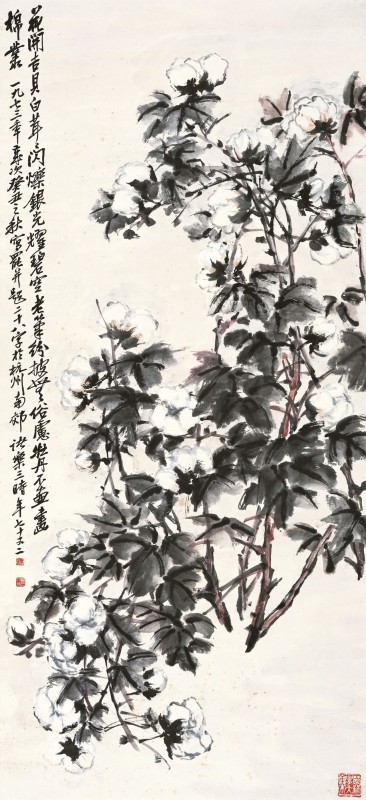 花開吉貝白茸茸閃爍銀光耀碧空老筆紛披無俗慮牡丹不畫畫
棉叢一九七三年歲次癸丑之秋寫罷并題二十八字於杭州南郊諸樂三時年七十又二